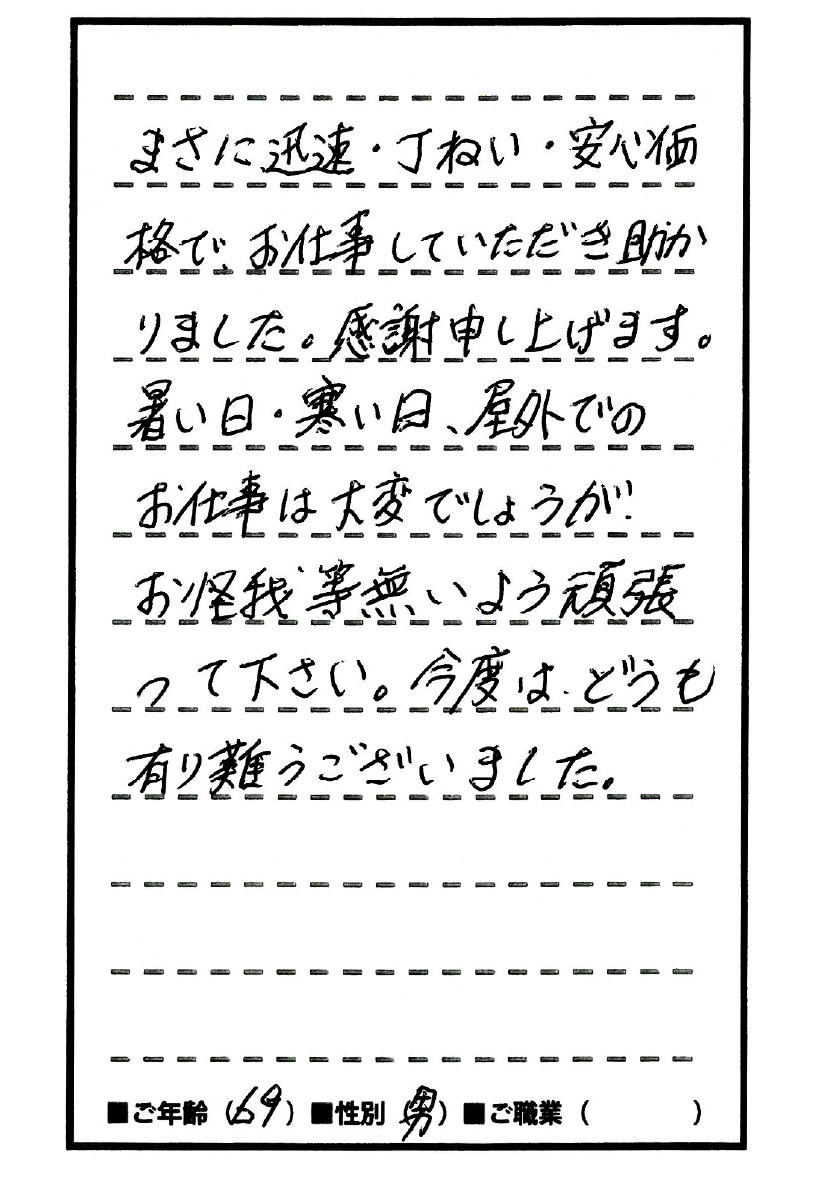 まさに迅速・丁ねい・安心価
格で、お仕事していただき助か
りました。感謝申し上げます。
暑い日・寒い日、屋外での
お仕事は大変でしょうが、
お怪我等無いよう頑張
って下さい。今度は、どうも
有り難うございました。
■ご年齢（69）■性別（男）■ご職業（　　　）